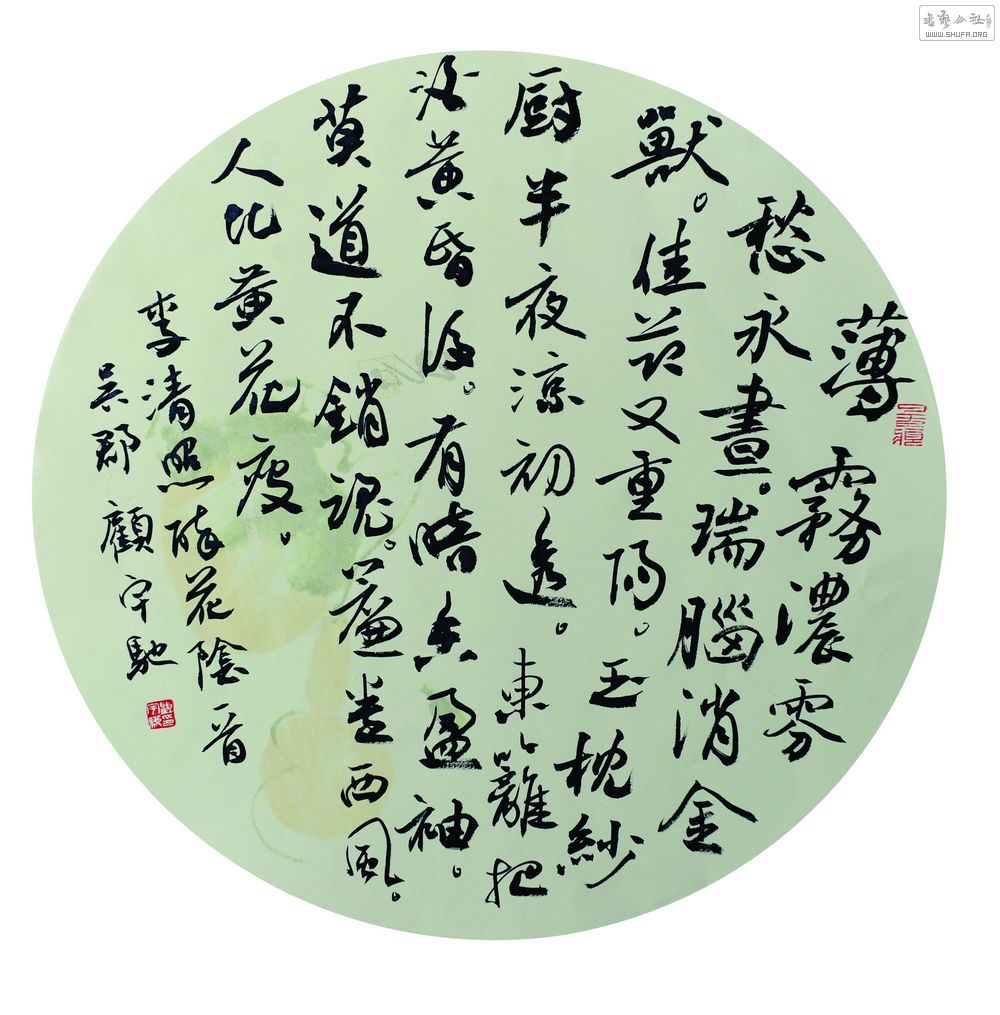 薄霧濃雰
愁永晝。瑞腦消金
獸。佳節又重陽。玉枕紗
厨半夜涼初透。東籬把
酒黃昏後。有暗香盈袖。
莫道不銷魂。簾卷西風。
人比黃花瘦。
李清照醉花陰一首
吳郡顧宇馳
書藝公社
WWW.SHUFA.ORG